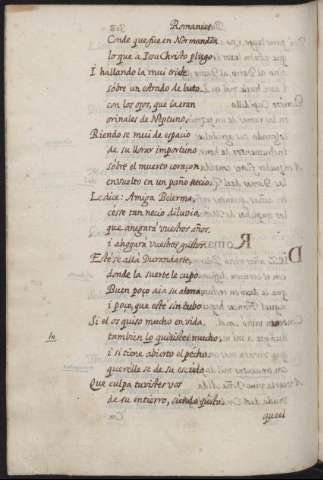 Romances
Conde que fue en Normandia
lo que a Jesu Christo plugo.
I hallando la mui triste
sobre un estrado de luto,
con los ojos, que ia eran
orinales de Neptuno,
Riendose mui de espacio
de su llorar importuno
sobre el muerto coraçon,
envuelto en un paño sucio,
Le dice: Amiga Belerma,
cesse tan necio diluvio,
que anegará vuestros años,
i ahogará vuestros gustos.
Este se allá Durandarte,
donde la suerte le cupo
Buen poço aia su alma,
i poço, que esté sin cubo
Si el os quiso mucho en vida,
la
tambien lo quisistes mucho,
i si tiene abierto el pecho,
querelle se de su escudo
Que culpa tuvistes vos
de su entierro, siendo justo
que el